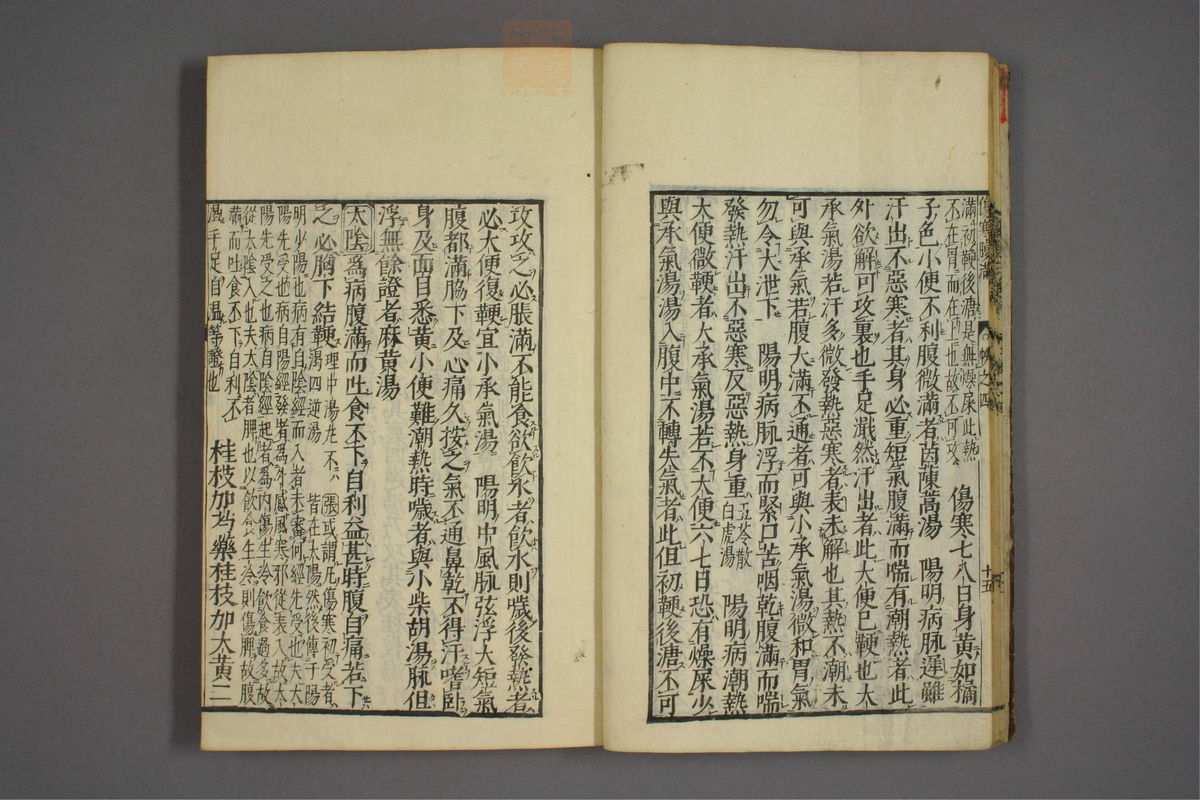 傷寒腸　卷之四　十五
滿初鞕後溏是無燥屎此熱
不在胃而在上也故不可攻
傷寒七八日身黃如橘
子色小便不利腹微滿者茵蔯蒿湯　陽明病脉遲雖
汗出不惡寒者其身必重短氣腹滿而喘有潮熱者此
外欲解可攻裏也手足濈然汗出者此大便已鞕也大
承氣湯若汗多微發熱惡寒者表未解也其熱不潮未
可與承氣若腹大滿不通者可與小承氣湯微和胃氣
勿令大泄下　陽明病脉浮而緊口苦咽乾腹滿而喘
發熱汗出不惡寒反惡熱身重五苓散白虎湯　陽明病潮熱
大便微鞕者大承氣湯若不大便六七日恐有燥屎少
與承氣湯湯入腹中不轉失氣者此但初鞕後溏不可
攻攻之必脹滿不能食欲飲水者飲水則噦後發熱者
必大便復鞕宜小承氣湯　陽明中風脉弦浮大短氣
腹都滿脇下及心痛久按之氣不通鼻乾不得汗嗜卧
身及面目悉黃小便難潮熱時噦者與小柴胡湯脉但
浮無餘證者麻黃湯
太陰爲病腹滿而吐食不下自利益甚時腹自痛若下
之必胸下結鞕
理中湯丸不
瀉四逆湯
張或謂凡傷寒初受者
皆在太陽然後傳于陽
明少陽也病有自陰經而入者未審何經先受也夫太
陽先受也病自陽經發者爲外感風寒邪從表入故太
陽先受之也病自陰經起者爲内傷生冷飲食過多故
從太陰入也夫太陰者脾也以飲食生冷則傷脾故腹
滿而吐食不下自利不
溫手足自溫等證也
桂枝加芍藥桂枝加大黃二